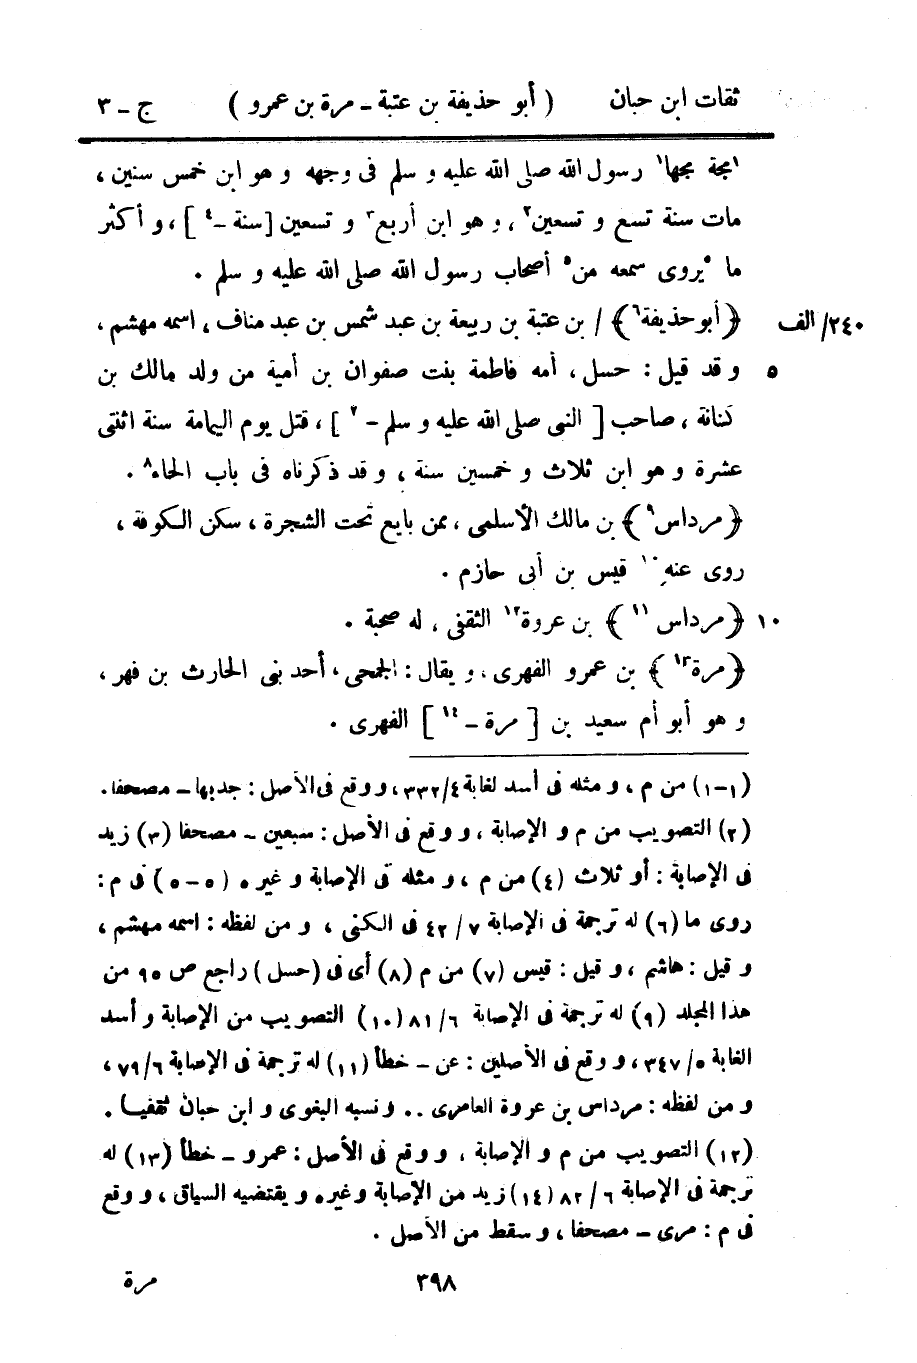 ثقات ابن حبان ( أبو حذيفة بن عتبة ـ مرة بن عمرو ) ج ـ ٣
١مجة مجها١ رسول الله صلى الله عليه و سلم فى وجهه و هو ابن خمس سنين ،
مات سنة تسع و تسعين٢ ، و هو ابن أربع٣ و تسعين [ سنة ـ٤ ] ، و أكثر
ما ٥يروى سمعه من٥ أصحاب رسول الله صلى الله عليه و سلم .
﴿ أبو حذيفة٦ ﴾ / بن عتبة بن ربيعة بن عبد شمس بن عبد مناف ، اسمه مهشم ، ٢٤٠/ الف
٥ و قد قيل : حسل ، أمه فاطمة بنت صفوان بن أمية من ولد مالك بن
كنانة ، صاحب [ النبى صلى الله عليه و سلم ـ ٧ ] ، قتل يوم اليمامة سنة اثنتى
عشرة و هو ابن ثلاث و خمسين سنة ، و قد ذكرناه فى باب الحاء٨ .
﴿ مرداس٩ ﴾ بن مالك الأسلمى ، ممن بايع تحت الشجرة ، سكن الكوفة ،
روى عنه١٠ قيس بن أبى حازم .
١٠ ﴿ مرداس١١ ﴾ بن عروة١٢ الثقفى ، له صحبة .
﴿ مرة١٣ ﴾ بن عمرو الفهرى ، و يقال : الجمحى ، أحد بنى الحارث بن فهر ،
و هو أبو أم سعيد بن [ مرة ـ ١٤ ] الفهرى .
(١-١) من م ، و مثله فى أسد لغابة ٣٣٢/٤ ، و وقع فى الأصل : جدبها ـ مصحفا .
(٢) التصويب من م و الإصابة ، و وقع فى الأصل : سبعين ـ مصحفا (٣) زيد
فى الإصابة : أو ثلاث (٤) من م ، و مثله فى الإصابة و غيره (٥-٥) فى م :
روى ما (٦) له ترجمة فى الإصابة ٧ / ٤٢ فى الكنى ، و من لفظه : اسمه مهشم ،
و قيل : هاشم ، و قيل : قيس (٧) من م (٨) أى فى (حسل) راجع ص ٩٥ من
هذا المجلد (٩) له ترجمة فى الإصابة ٦ /٨١ (١٠) التصويب من الإصابة و أسد
الغابة ٥/ ٣٤٧ ، و وقع فى الأصلين : عن ـ خطأ (١١) له ترجمة فى الإصابة ٧٩/٦ ،
و من لفظه : مرداس بن عروة العامرى .. و نسبه البغوى و ابن حبان ثقفيا .
(١٢) التصويب من م و الإصابة ، و وقع فى الأصل : عمرو ـ خطأ (١٣) له
ترجمة فى الإصابة ٦ / ٨٢ (١٤) زيد من الإصابة و غيره و يقتضيه السياق ، و وقع
فى م : مرى ـ مصحفا ، و سقط من الأصل .
٣٩٨ مرة